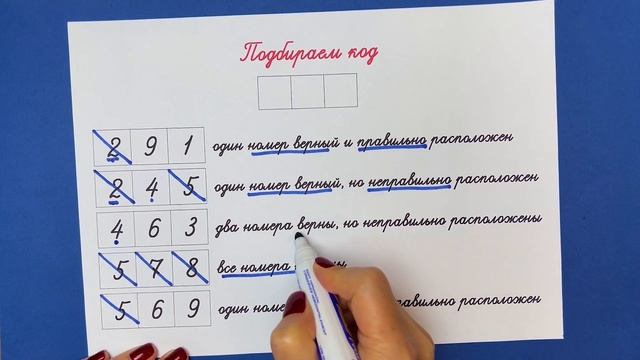 Подбираем код
2 9 1 один номер верный и правильно расположен
2 4 5 один номер верный, но неправильно расположен
4 6 3 два номера верны, но неправильно расположены
5 7 8 все номера
5 6 9 один расположен